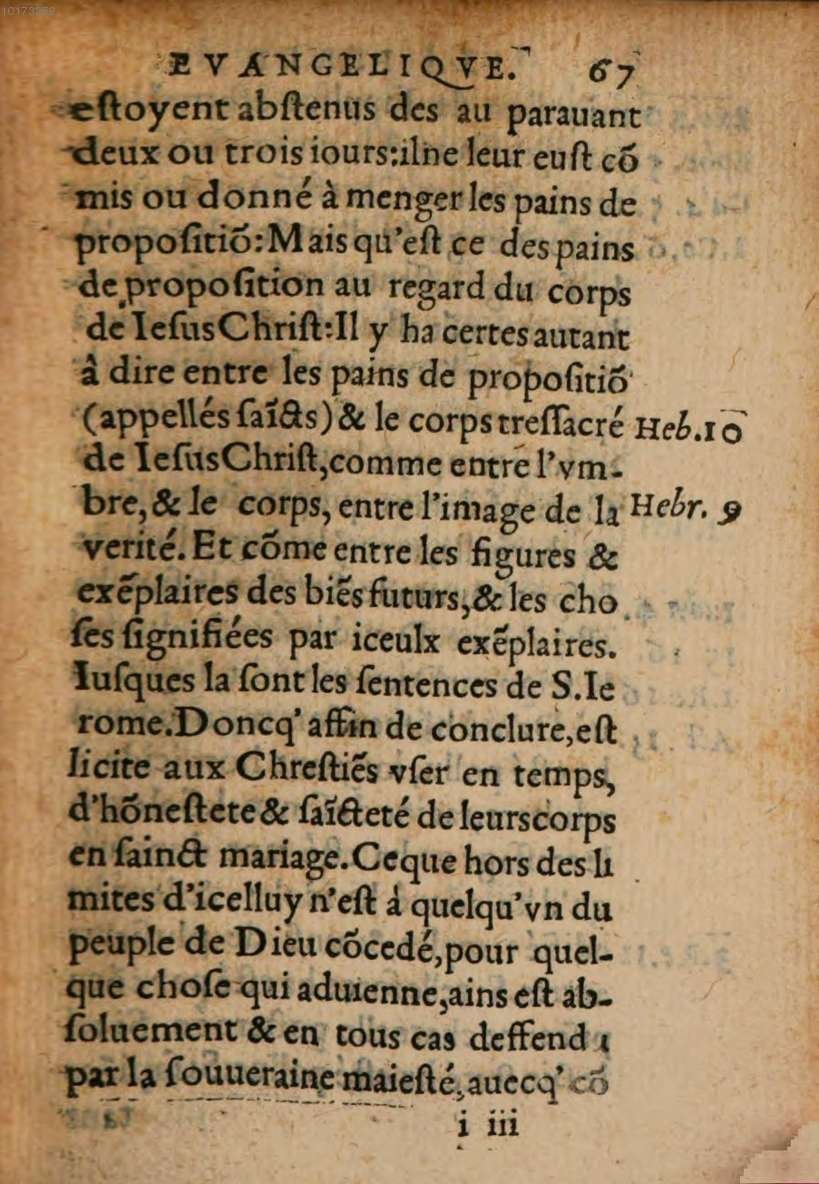 10173559
EVANGELIQVE. 67
estoyent abstenus des au parauant
deux ou trois iours:ilne leur eust cō
mis ou donné à menger les pains de
propositiō:Mais qu'est ce des pains
de proposition au regard du corps
de Iesus Christ:Il y ha certes autant
â dire entre les pains de propositiō
(appellés saīcts) & le corps tressacré
Heb.10
de Iesus Christ,comme entre l'vm-
bre, & le corps, entre l'image de la
Hebr. 9
verité. Et cōme entre les figures &
exēplaires des biēs futurs,& les cho
ses signifiées par iceulx exēplaires.
Iusques la sont les sentences de S.Ie
rome.Doncq' affin de conclure,est
licite aux Chrestiēs vser en temps,
d'hōnestete & saīcteté de leurs corps
en sainct mariage.Ce que hors des li
mites d'icelluy n'est á quelqu'vn du
peuple de Dieu cōcedé,pour quel-
que chose qui aduienne,ains est ab-
soluement & en tous cas deffend
par la souueraine maiesté, auecq' cō
i iii